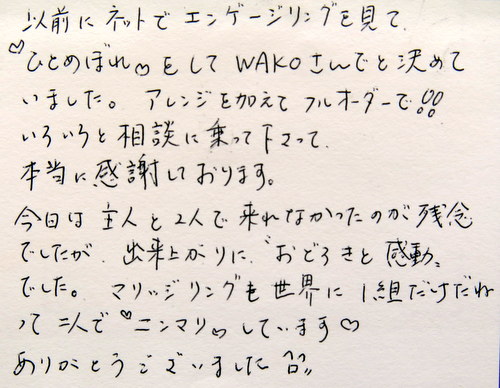 以前にネットでエンゲージリングを見て、
♡ひとめぼれ♡をしてWAKOさんでと決めて
いました。アレンジを加えてフルオーダーで!!
いろいろと相談に乗って下さって、
本当に感謝しております。
今日は主人と2人で来れなかったのが残念
でしたが、出来上がりに、"おどろきと感動"
でした。マリッジリングも世界に1組だけだね
って二人で♡ニンマリ♡しています♡
ありがとうございました!!